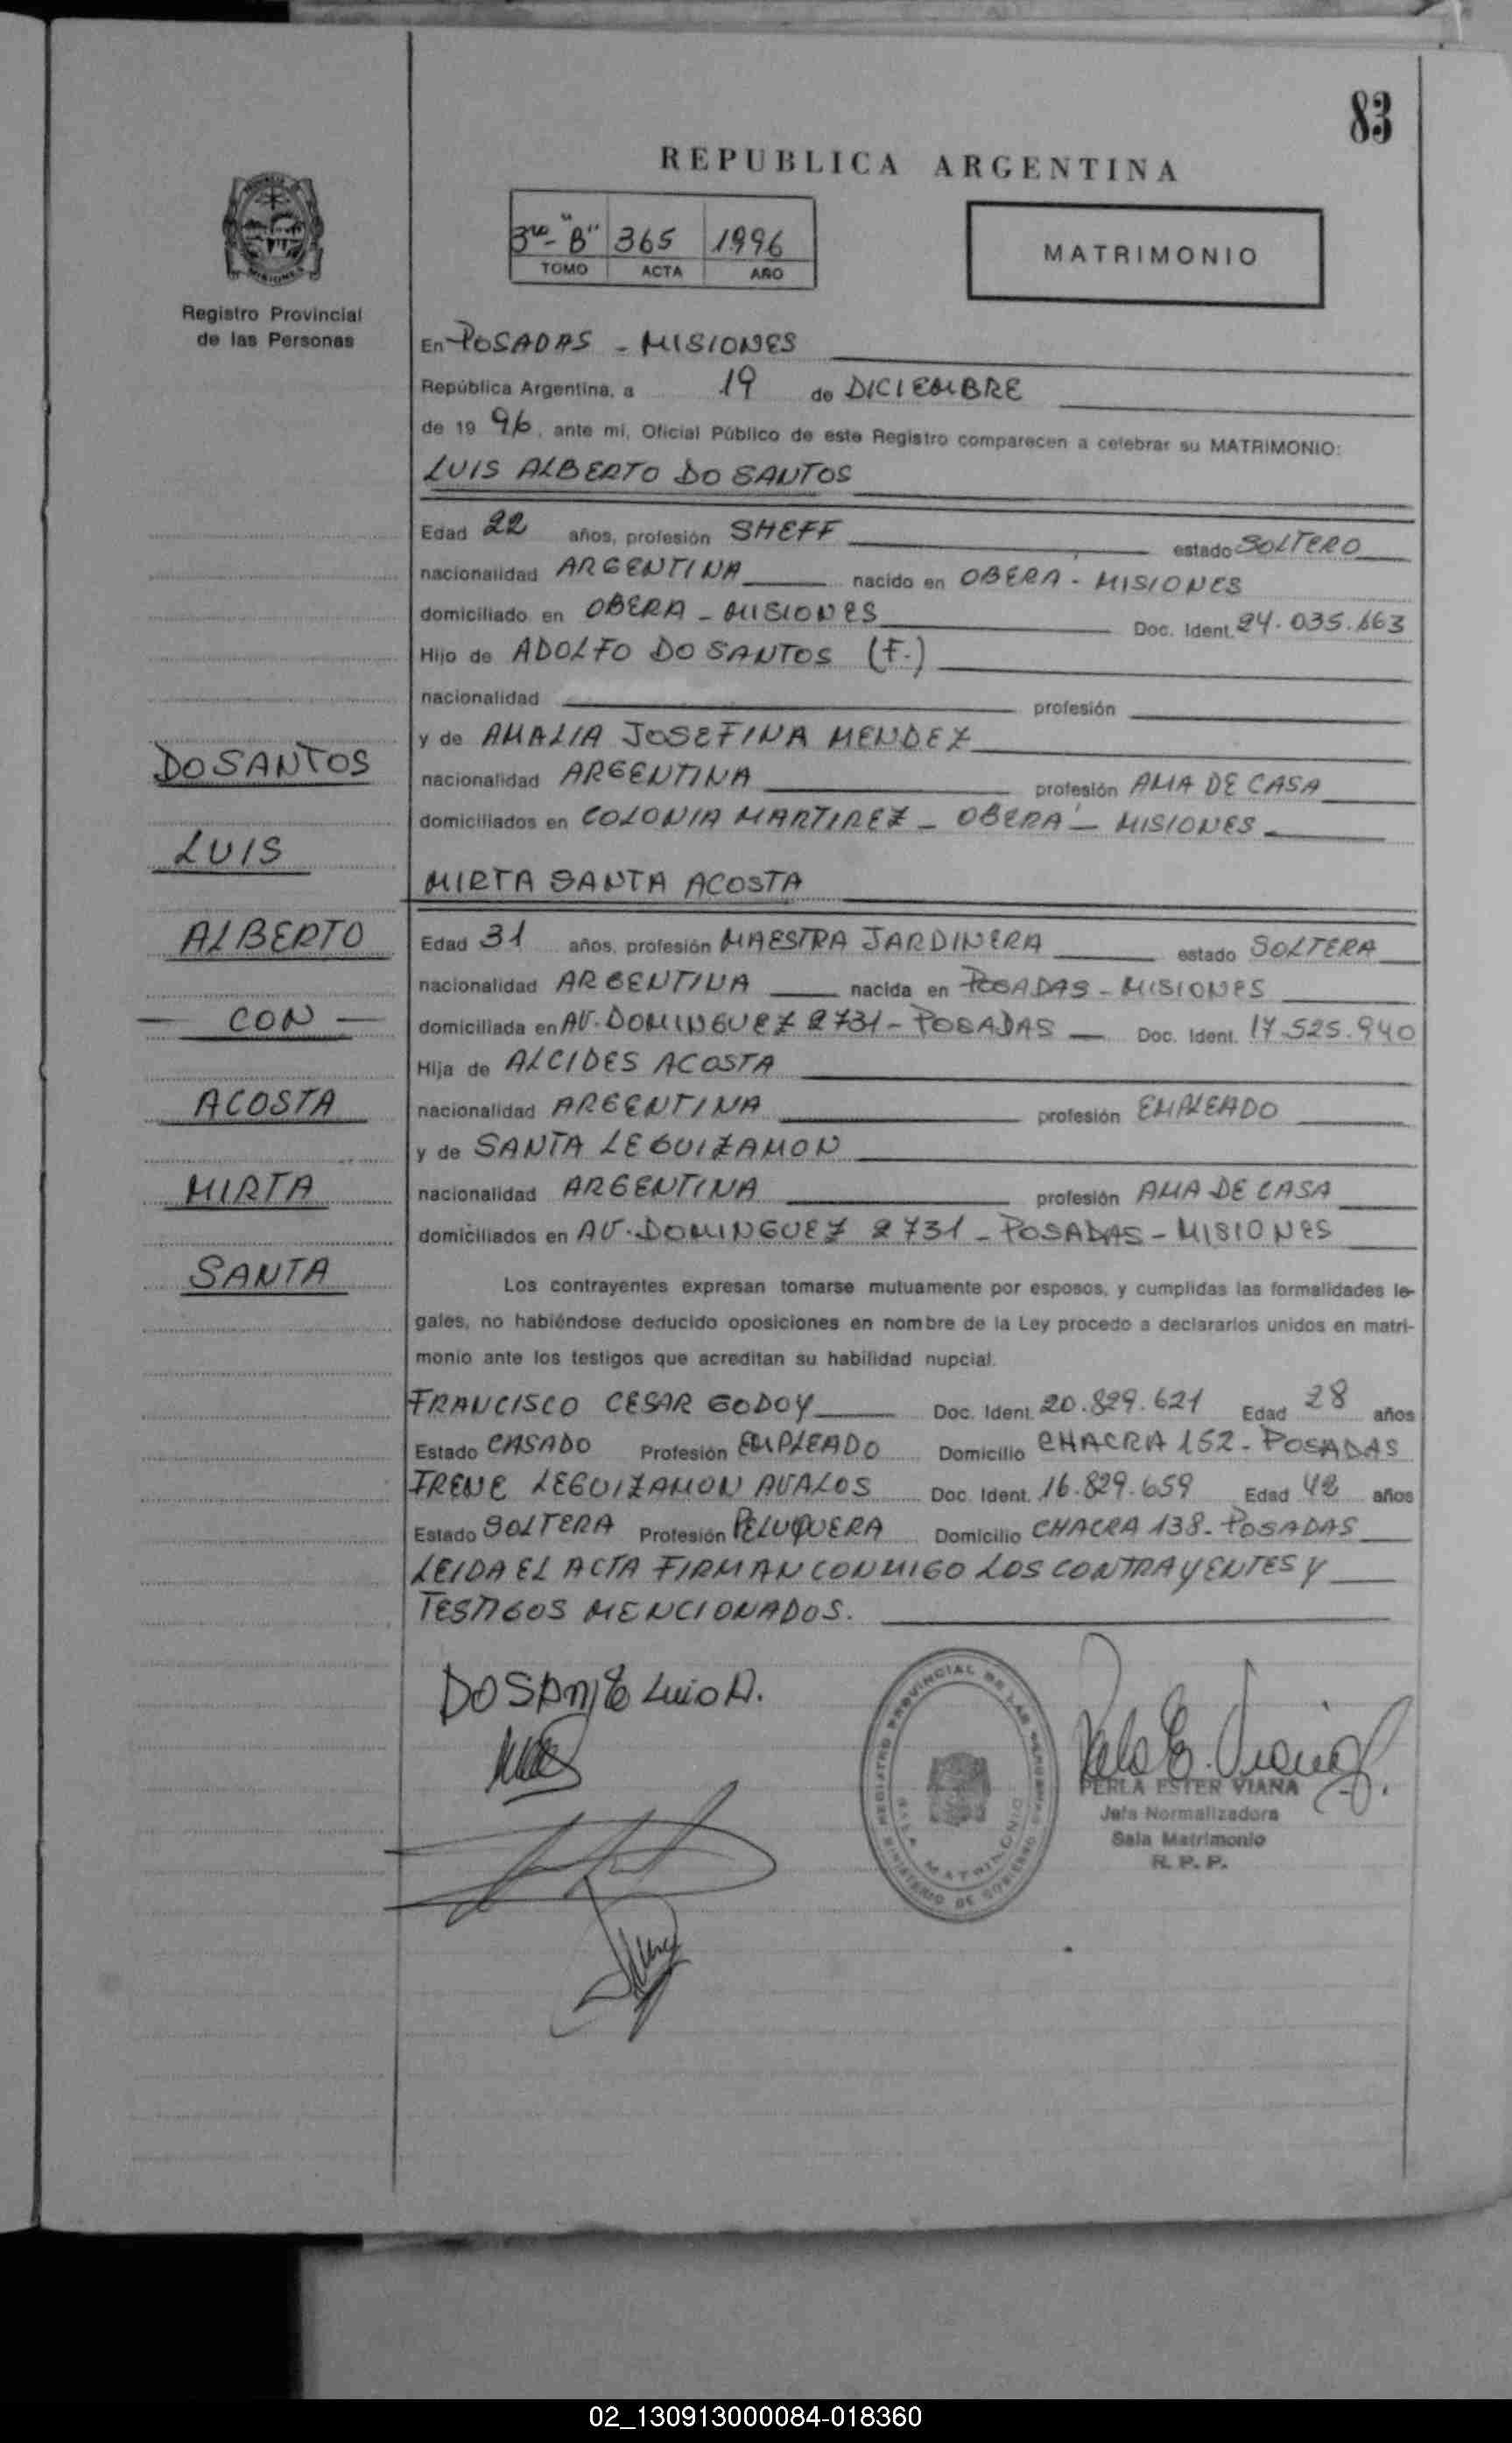 83
REPUBLICA ARGENTINA
3ro- "B" 365 1996
TOMO ACTA AÑO
MATRIMONIO
Registro Provincial
de las Personas
En POSADAS - MISIONES
República Argentina, a 19 de DICIEMBRE
de 19 96, ante mí, Oficial Público de este Registro comparecen a celebrar su MATRIMONIO:
LUIS ALBERTO DO SANTOS
Edad 22 años, profesión SHEFF estado SOLTERO
nacionalidad ARGENTINA nacido en OBERA - MISIONES
domiciliado en OBERA - MISIONES Doc. Ident. 24.035.663
Hijo de ADOLFO DO SANTOS (F.)
nacionalidad profesión
y de AMALIA JOSEFINA MENDEZ
nacionalidad ARGENTINA profesión AMA DE CASA
domiciliados en COLONIA MARTIREZ - OBERÁ - MISIONES
MIRTA SANTA ACOSTA
Edad 31 años, profesión MAESTRA JARDINERA estado SOLTERA
nacionalidad ARGENTINA nacida en POSADAS - MISIONES
domiciliada en AV. DOMINGUEZ 2731 - POSADAS Doc. Ident. 17.525.940
Hija de ALCIDES ACOSTA
nacionalidad ARGENTINA profesión EMPLEADO
y de SANTA LEGUIZAMON
nacionalidad ARGENTINA profesión AMA DE CASA
domiciliados en AV. DOMINGUEZ 2731 - POSADAS - MISIONES
Los contrayentes expresan tomarse mutuamente por esposos, y cumplidas las formalidades le-
gales, no habiéndose deducido oposiciones en nombre de la Ley procedo a declararlos unidos en matri-
monio ante los testigos que acreditan su habilidad nupcial.
FRANCISCO CESAR GODOY Doc. Ident. 20.829.621 Edad 28 años
Estado CASADO Profesión EMPLEADO Domicilio CHACRA 152 - POSADAS
IRENE LEGUIZAMON AVALOS Doc. Ident. 16.829.659 Edad 42 años
Estado SOLTERA Profesión PELUQUERA Domicilio CHACRA 138 - POSADAS
LEIDA EL ACTA FIRMAN CONMIGO LOS CONTRAYENTES Y
TESTIGOS MENCIONADOS.
DO SANTOS
LUIS
ALBERTO
- CON -
ACOSTA
MIRTA
SANTA
DO SANTOS Luis A.
REGISTRO PROVINCIAL DE LAS PERSONAS
SALA MATRIMONIO
MINISTERIO DE GOBIERNO
PERLA ESTER VIANA
Jefa Normalizadora
Sala Matrimonio
R. P. P.
02_130913000084-018360